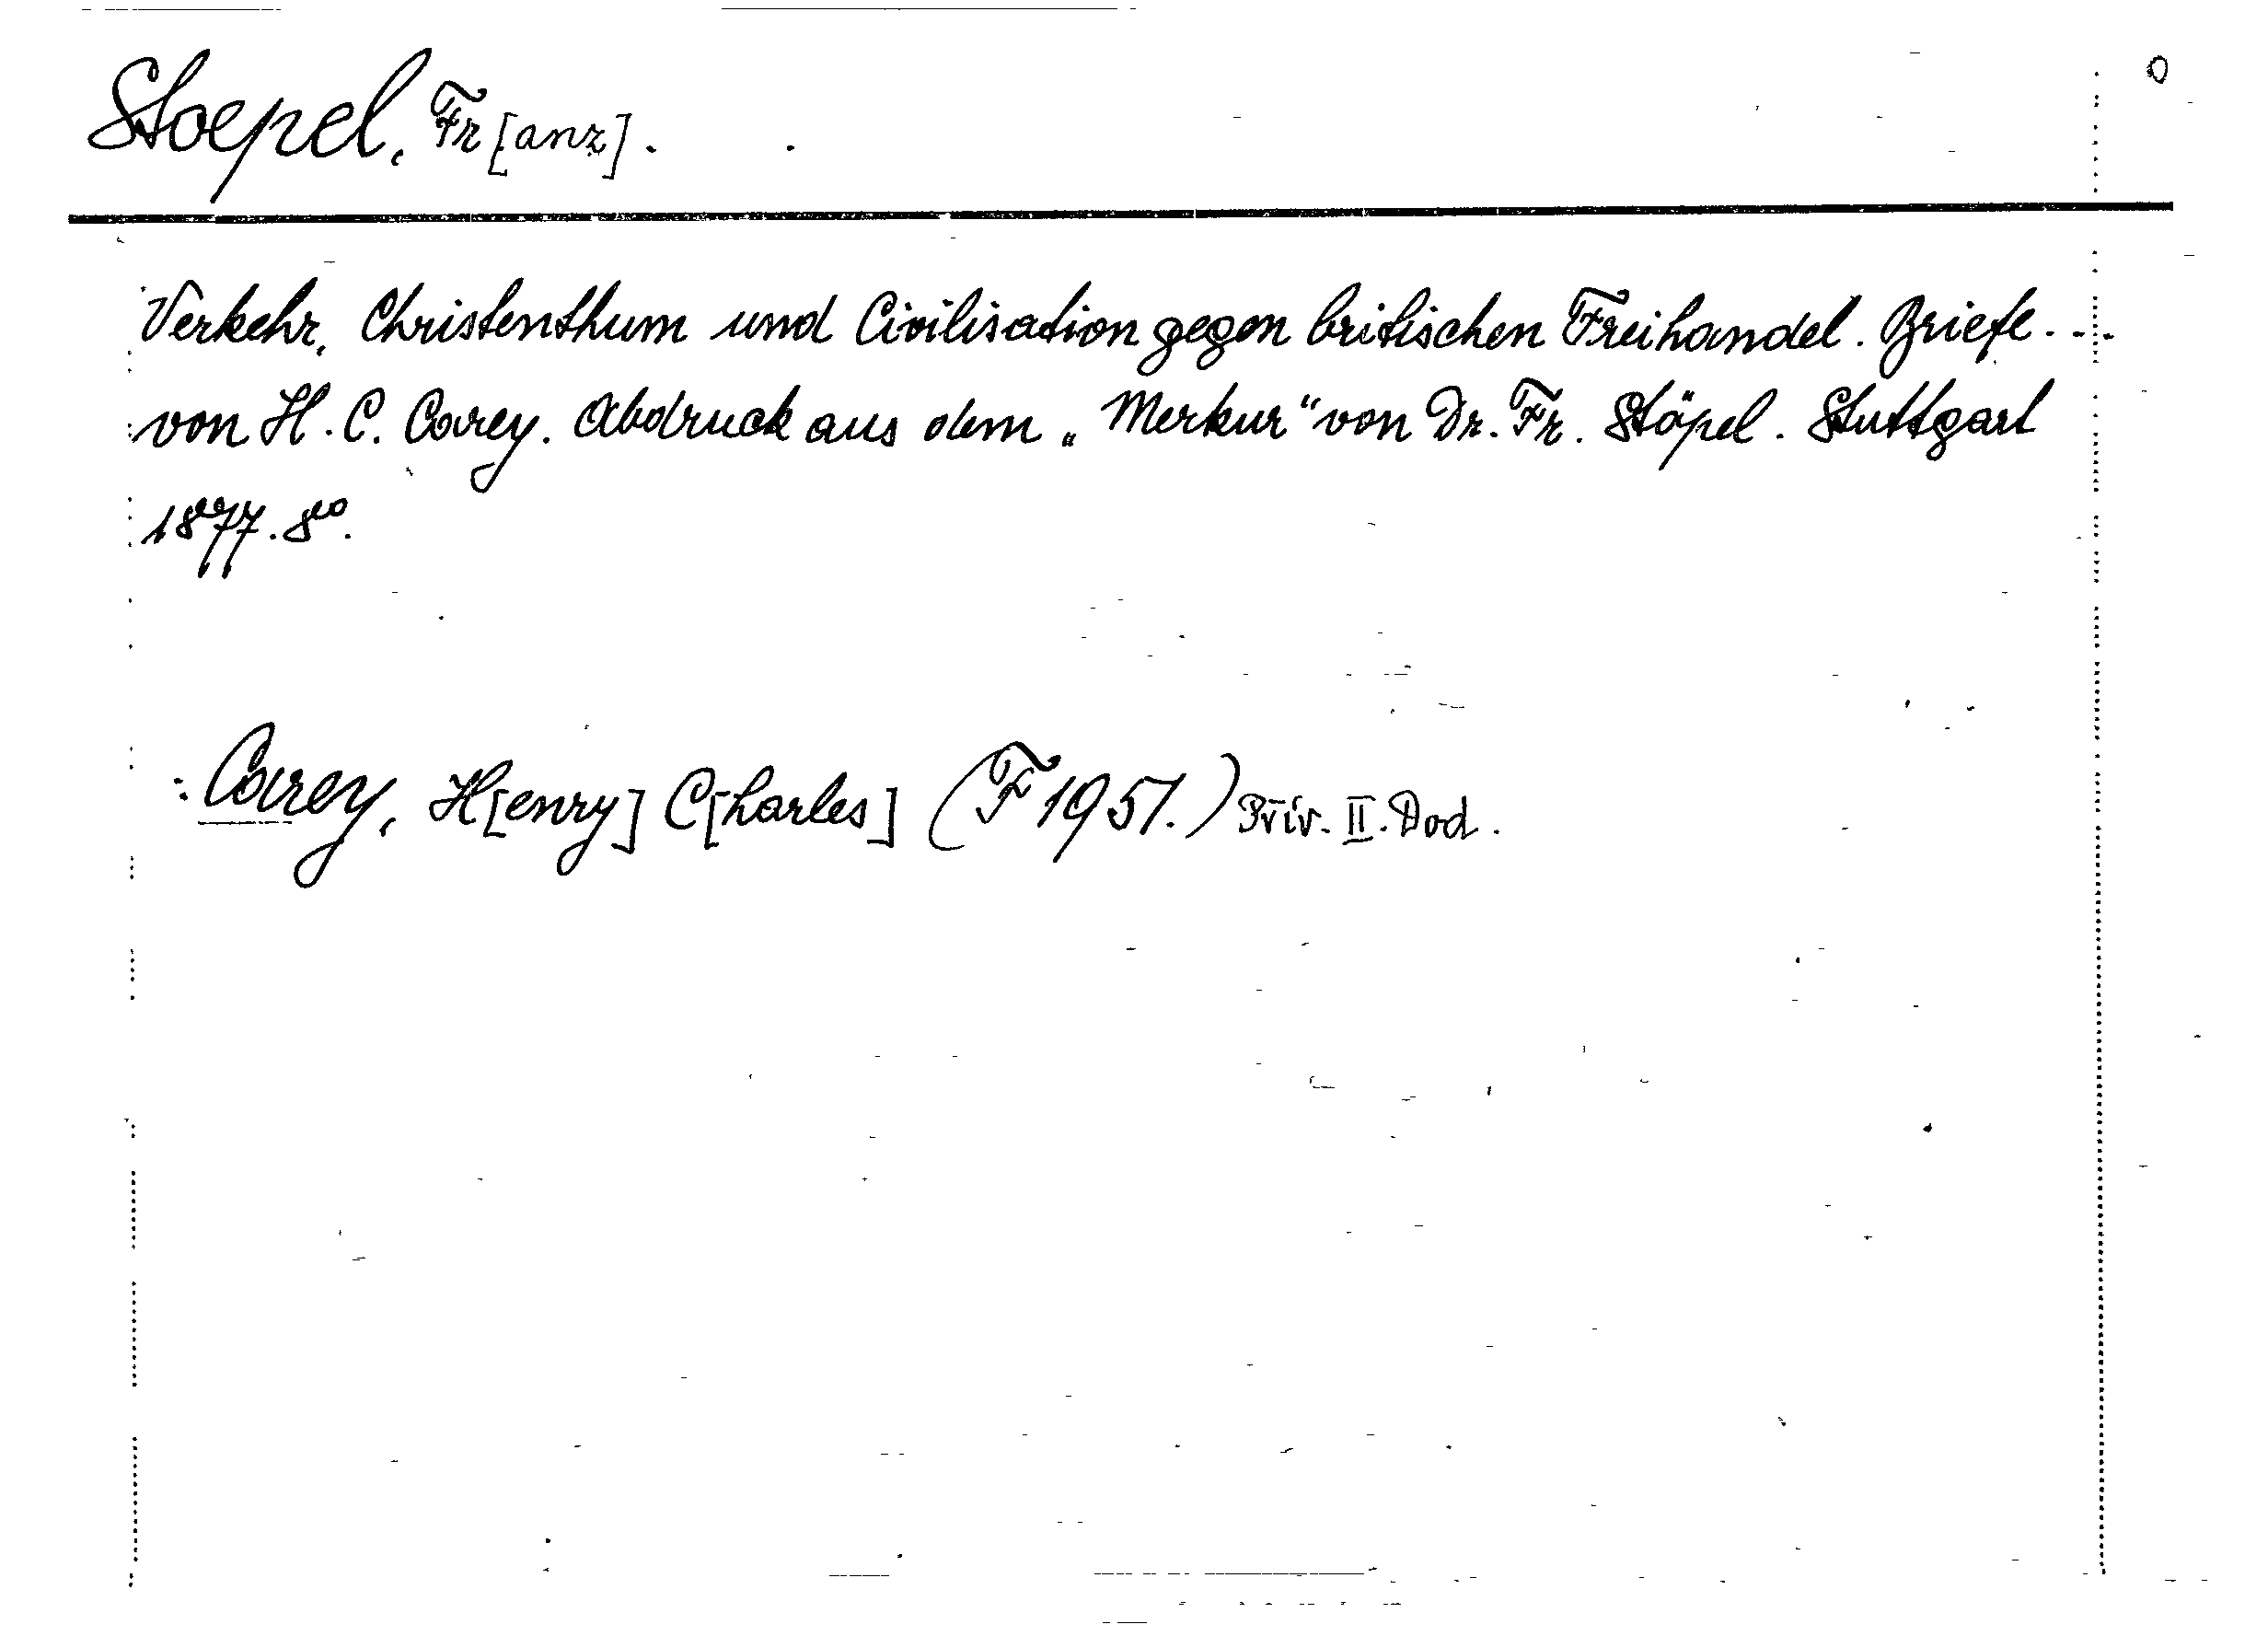 Stoepel, Fr[anz].
Verkehr, Christenthum und Civilisation gegen britischen Freihandel. Briefe...
von H. C. Carey. Abdruck aus dem „Merkur“ von Dr. Fr. Stöpel. Stuttgart
1877. 8°.
: Carey, H[enry] C[harles] (F 1951.) Priv. II. Dod.